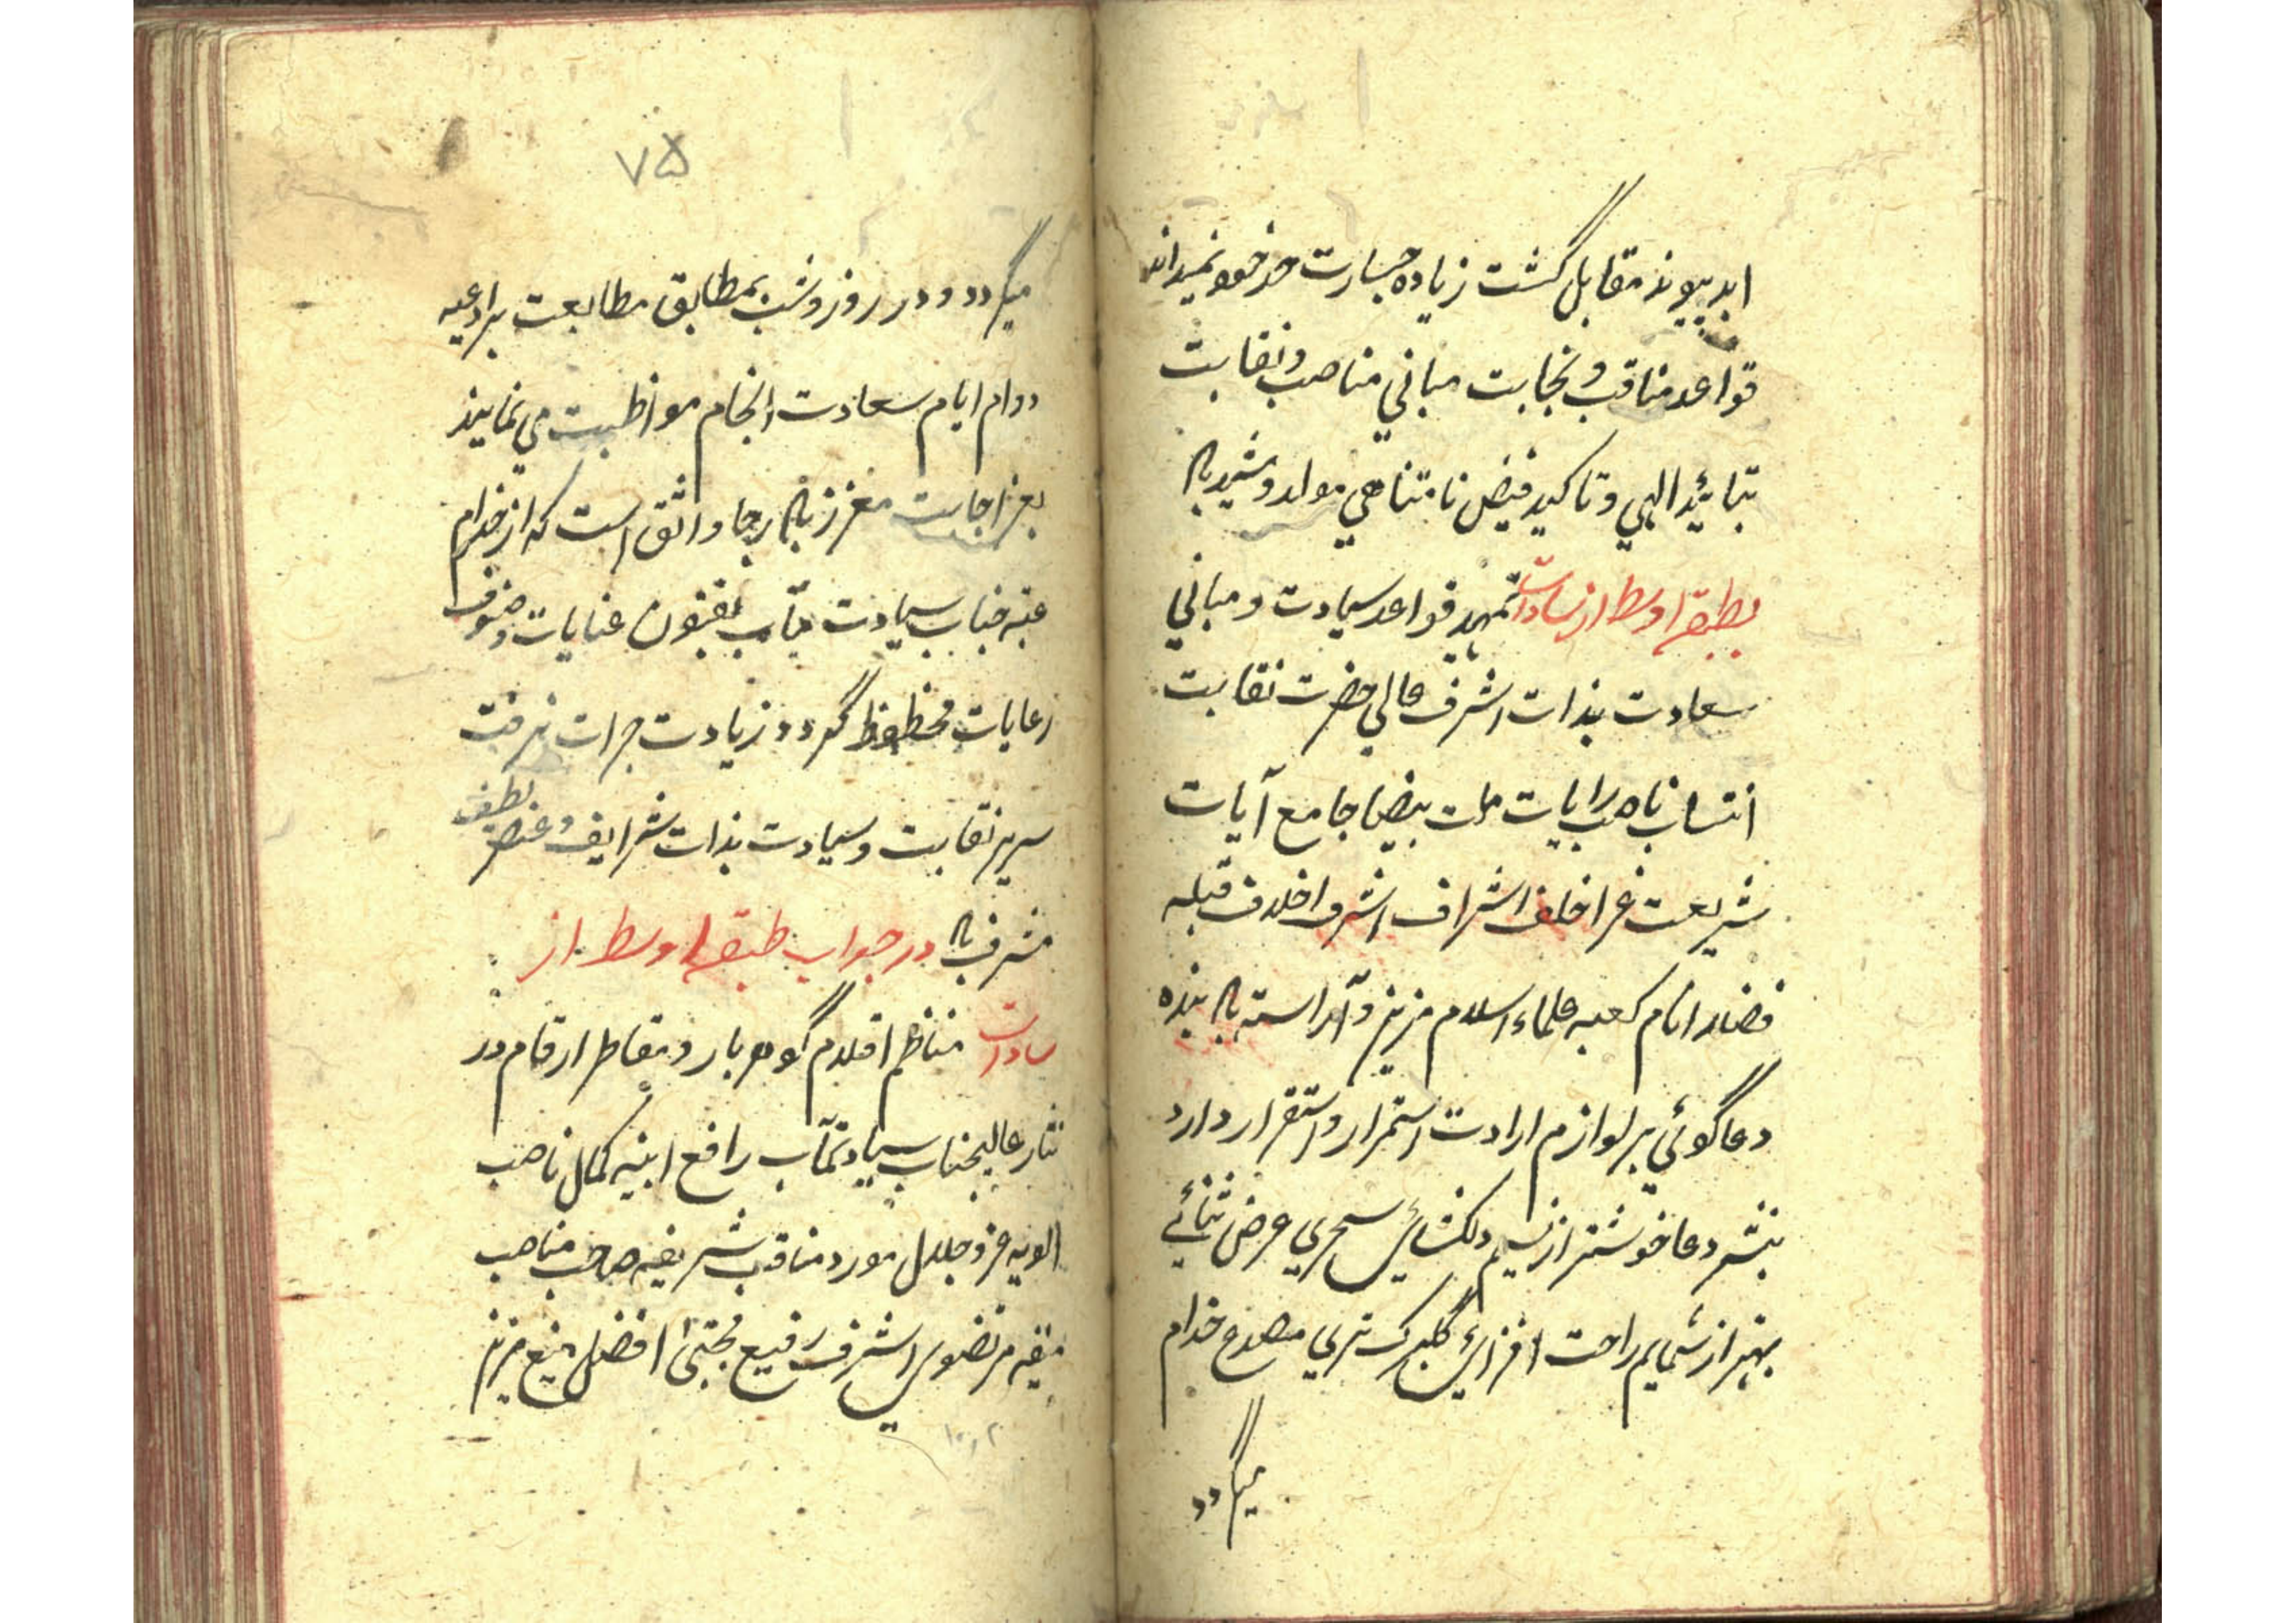 ابد پیوند مقابل گشت زیاده جسارت حد خود نمیداند
قواعد مناقب و نجابت مباني مناصب و نقابت
بتائید الهي و تاکید فیض نامتناهي موکد و مشید باد
بطبقه اوسط از سادات تمهید قواعد سیادت و مباني
سعادت بذات اشرف عالي حضرت نقابت
انتساب ناصب رایات ملت بیضا جامع آیات
شریعت غرا خلف اشراف اشرف اخلاف قبله
فضلاء انام کعبه علماء اسلام مزین و آراسته باد بنده
دعاگوئي بر لوازم ارادت استمرار و استقرار دارد
بنشر دعا خوشتر از نسیم دلکشاي سحري عرض ثنائي
بهتر از شمایم راحت افزاي گلبرک تري مصدع خدام
میگردد
۷۵
میگردد و در روز و شب بمطابق مطابعت بر ادعیه
دوام ایام سعادت انجام مواظبت مي نماید
بعز اجابت معزز باد رجا واثق است که از خدام
عتبه جناب سیادت مآب بفنون عنایات و صنوف
رعایات محظوظ گردد زیادت جرات نرفت
سریر نقابت و سیادت بذات شرایف و عنصر لطیف
مشرف باد در جواب طبقه اوسط از
سادات مناظم اقلام گوهر بار و مقاطر ارقام در
نثار عالیجناب سیادتمآب رافع ابنیه کمال ناصب
الویه عز و جلال مورد مناقب شریفه صاحب مناصب
منیفه مرتضوي اشرف رفیع مجتبی افضل منیع مزین